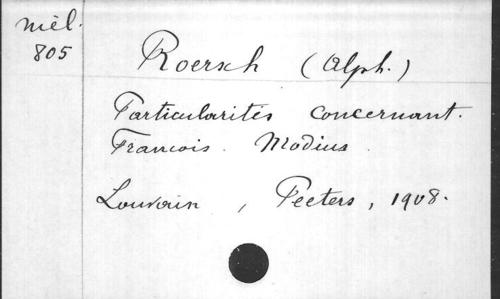 mél.
805
Roersch (Alph.)
Particularités concernant.
François. Modius.
Louvain, Peeters, 1908.